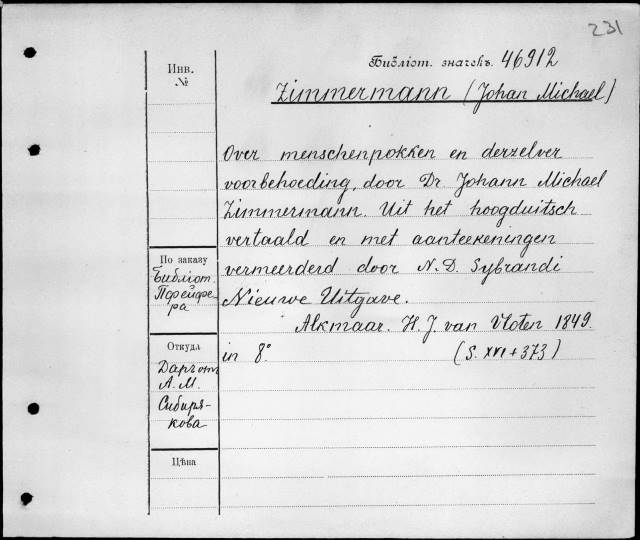 231
Библіот. значекъ 46912
Инв.
№
Zimmermann (Johan Michael)
Over menschenpokken en derzelver
voorbehoeding, door Dr. Johann Michael
Zimmermann. Uit het hoogduitsch
vertaald en met aanteekeningen
vermeerderd door N. D. Sybrandi
Nieuwe Uitgave.
Alkmaar. H. J. van Vloten 1849.
in 8º (S. XVI + 373)
По заказу
Библіот.
Пфейфе-
ра
Откуда
Даръ отъ
А. М.
Сибиря-
кова
Цѣна